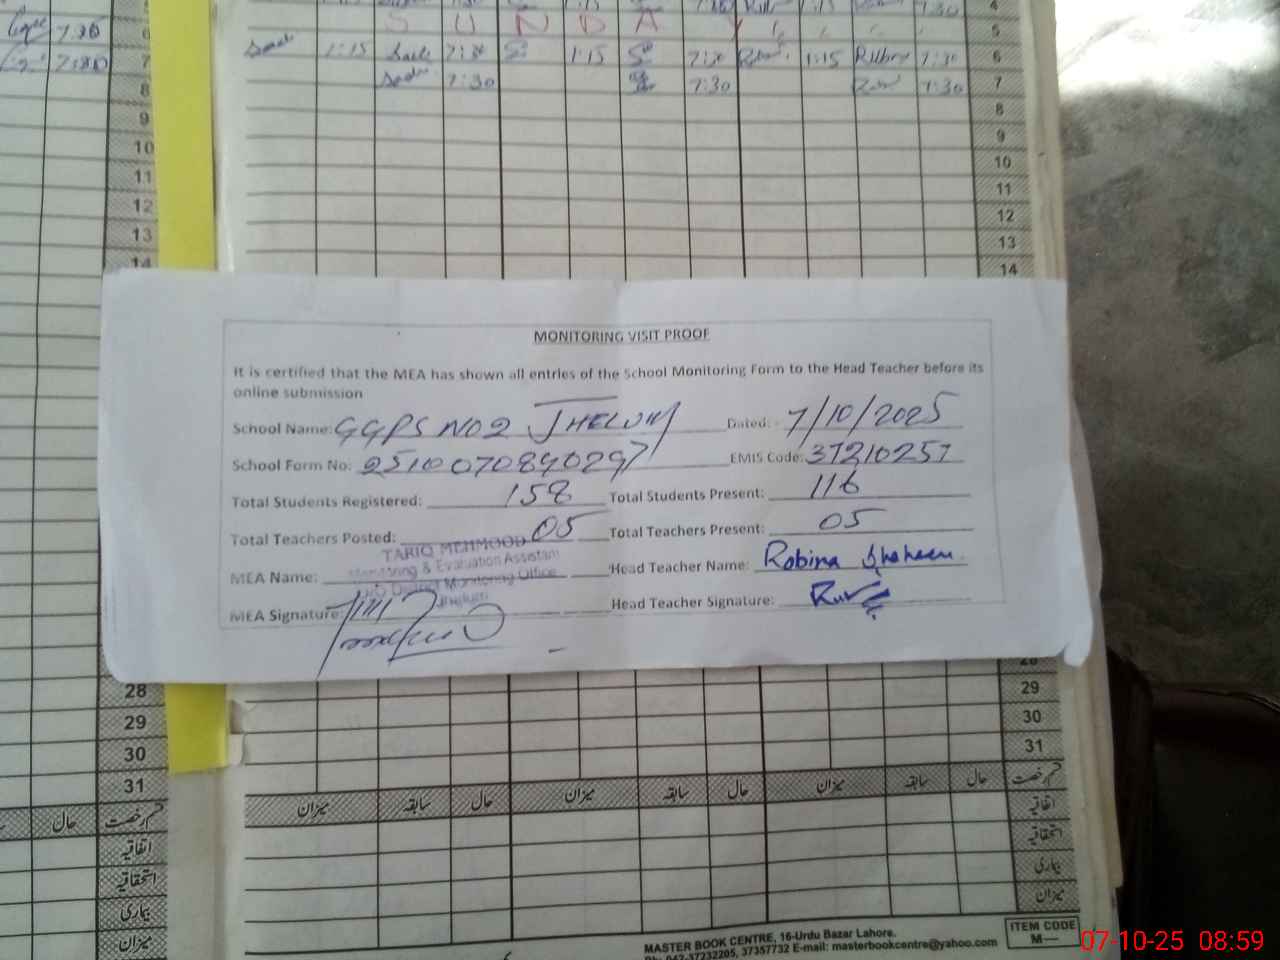 S U N D A Y
1:15 7:30 1:15 7:30 1:15 7:30 6
7:30 7:30 7:30 7
8
9
10
11
12
13
14
MONITORING VISIT PROOF
It is certified that the MEA has shown all entries of the School Monitoring Form to the Head Teacher before its
online submission
School Name: GGPS NO2 JHELUM Dated: 7/10/2025
School Form No: 2510070840297 EMIS Code: 37210257
Total Students Registered: 158 Total Students Present: 116
Total Teachers Posted: 05 Total Teachers Present: 05
TARIQ MEHMOOD
Monitoring & Evaluation Assistant
MEA Name: Head Teacher Name: Robina Shaheen
O/O District Monitoring Office
Jhelum
MEA Signature: Head Teacher Signature:
28
29 29
30 30
31 31
میزان سابقہ حال میزان سابقہ حال میزان سابقہ حال قسم رخصت
اتفاقیہ
استحقاقیہ
بیماری
میزان
حال قسم رخصت
اتفاقیہ
استحقاقیہ
بیماری
میزان
MASTER BOOK CENTRE, 16-Urdu Bazar Lahore.
Ph: 042-37232205, 37357732 E-mail: masterbookcentre@yahoo.com
ITEM CODE
M—
07-10-25 08:59